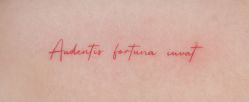 Audentis fortuna iuvat